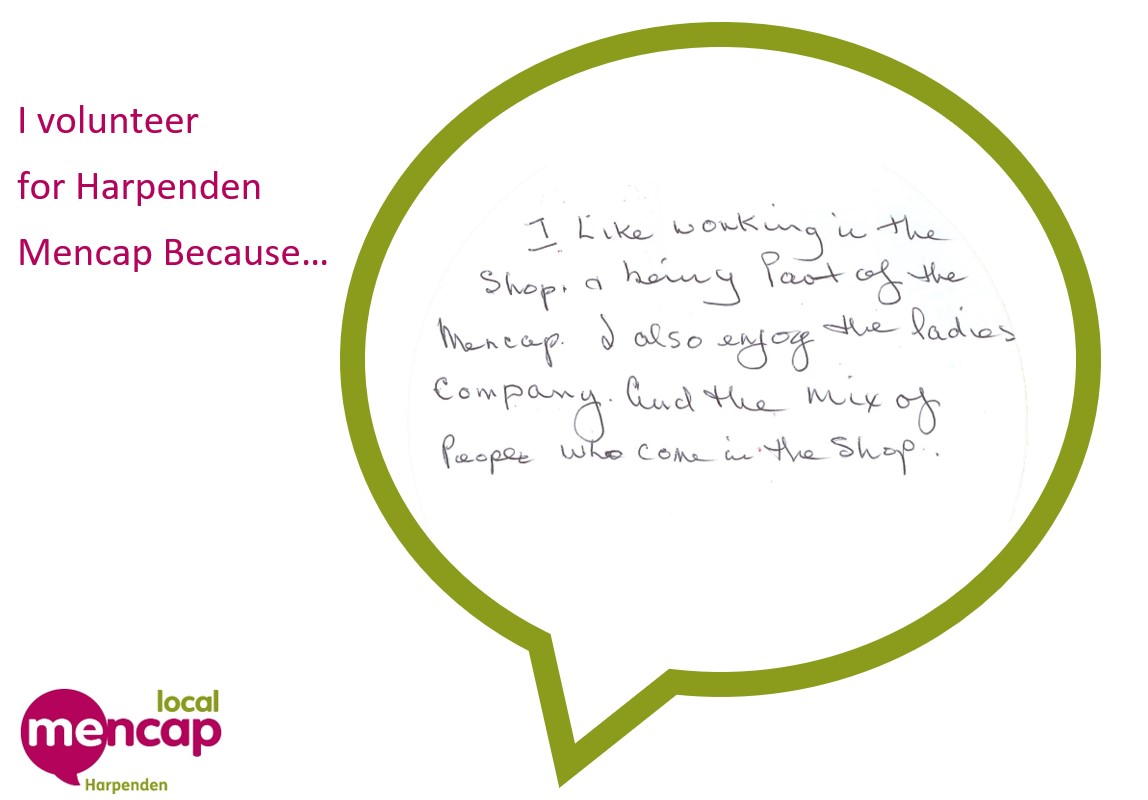 I volunteer
for Harpenden
Mencap Because...
I Like working in the
Shop. & being Part of the
Mencap. I also enjoy the ladies
Company. And the mix of
People who come in the Shop..
local
mencap
Harpenden